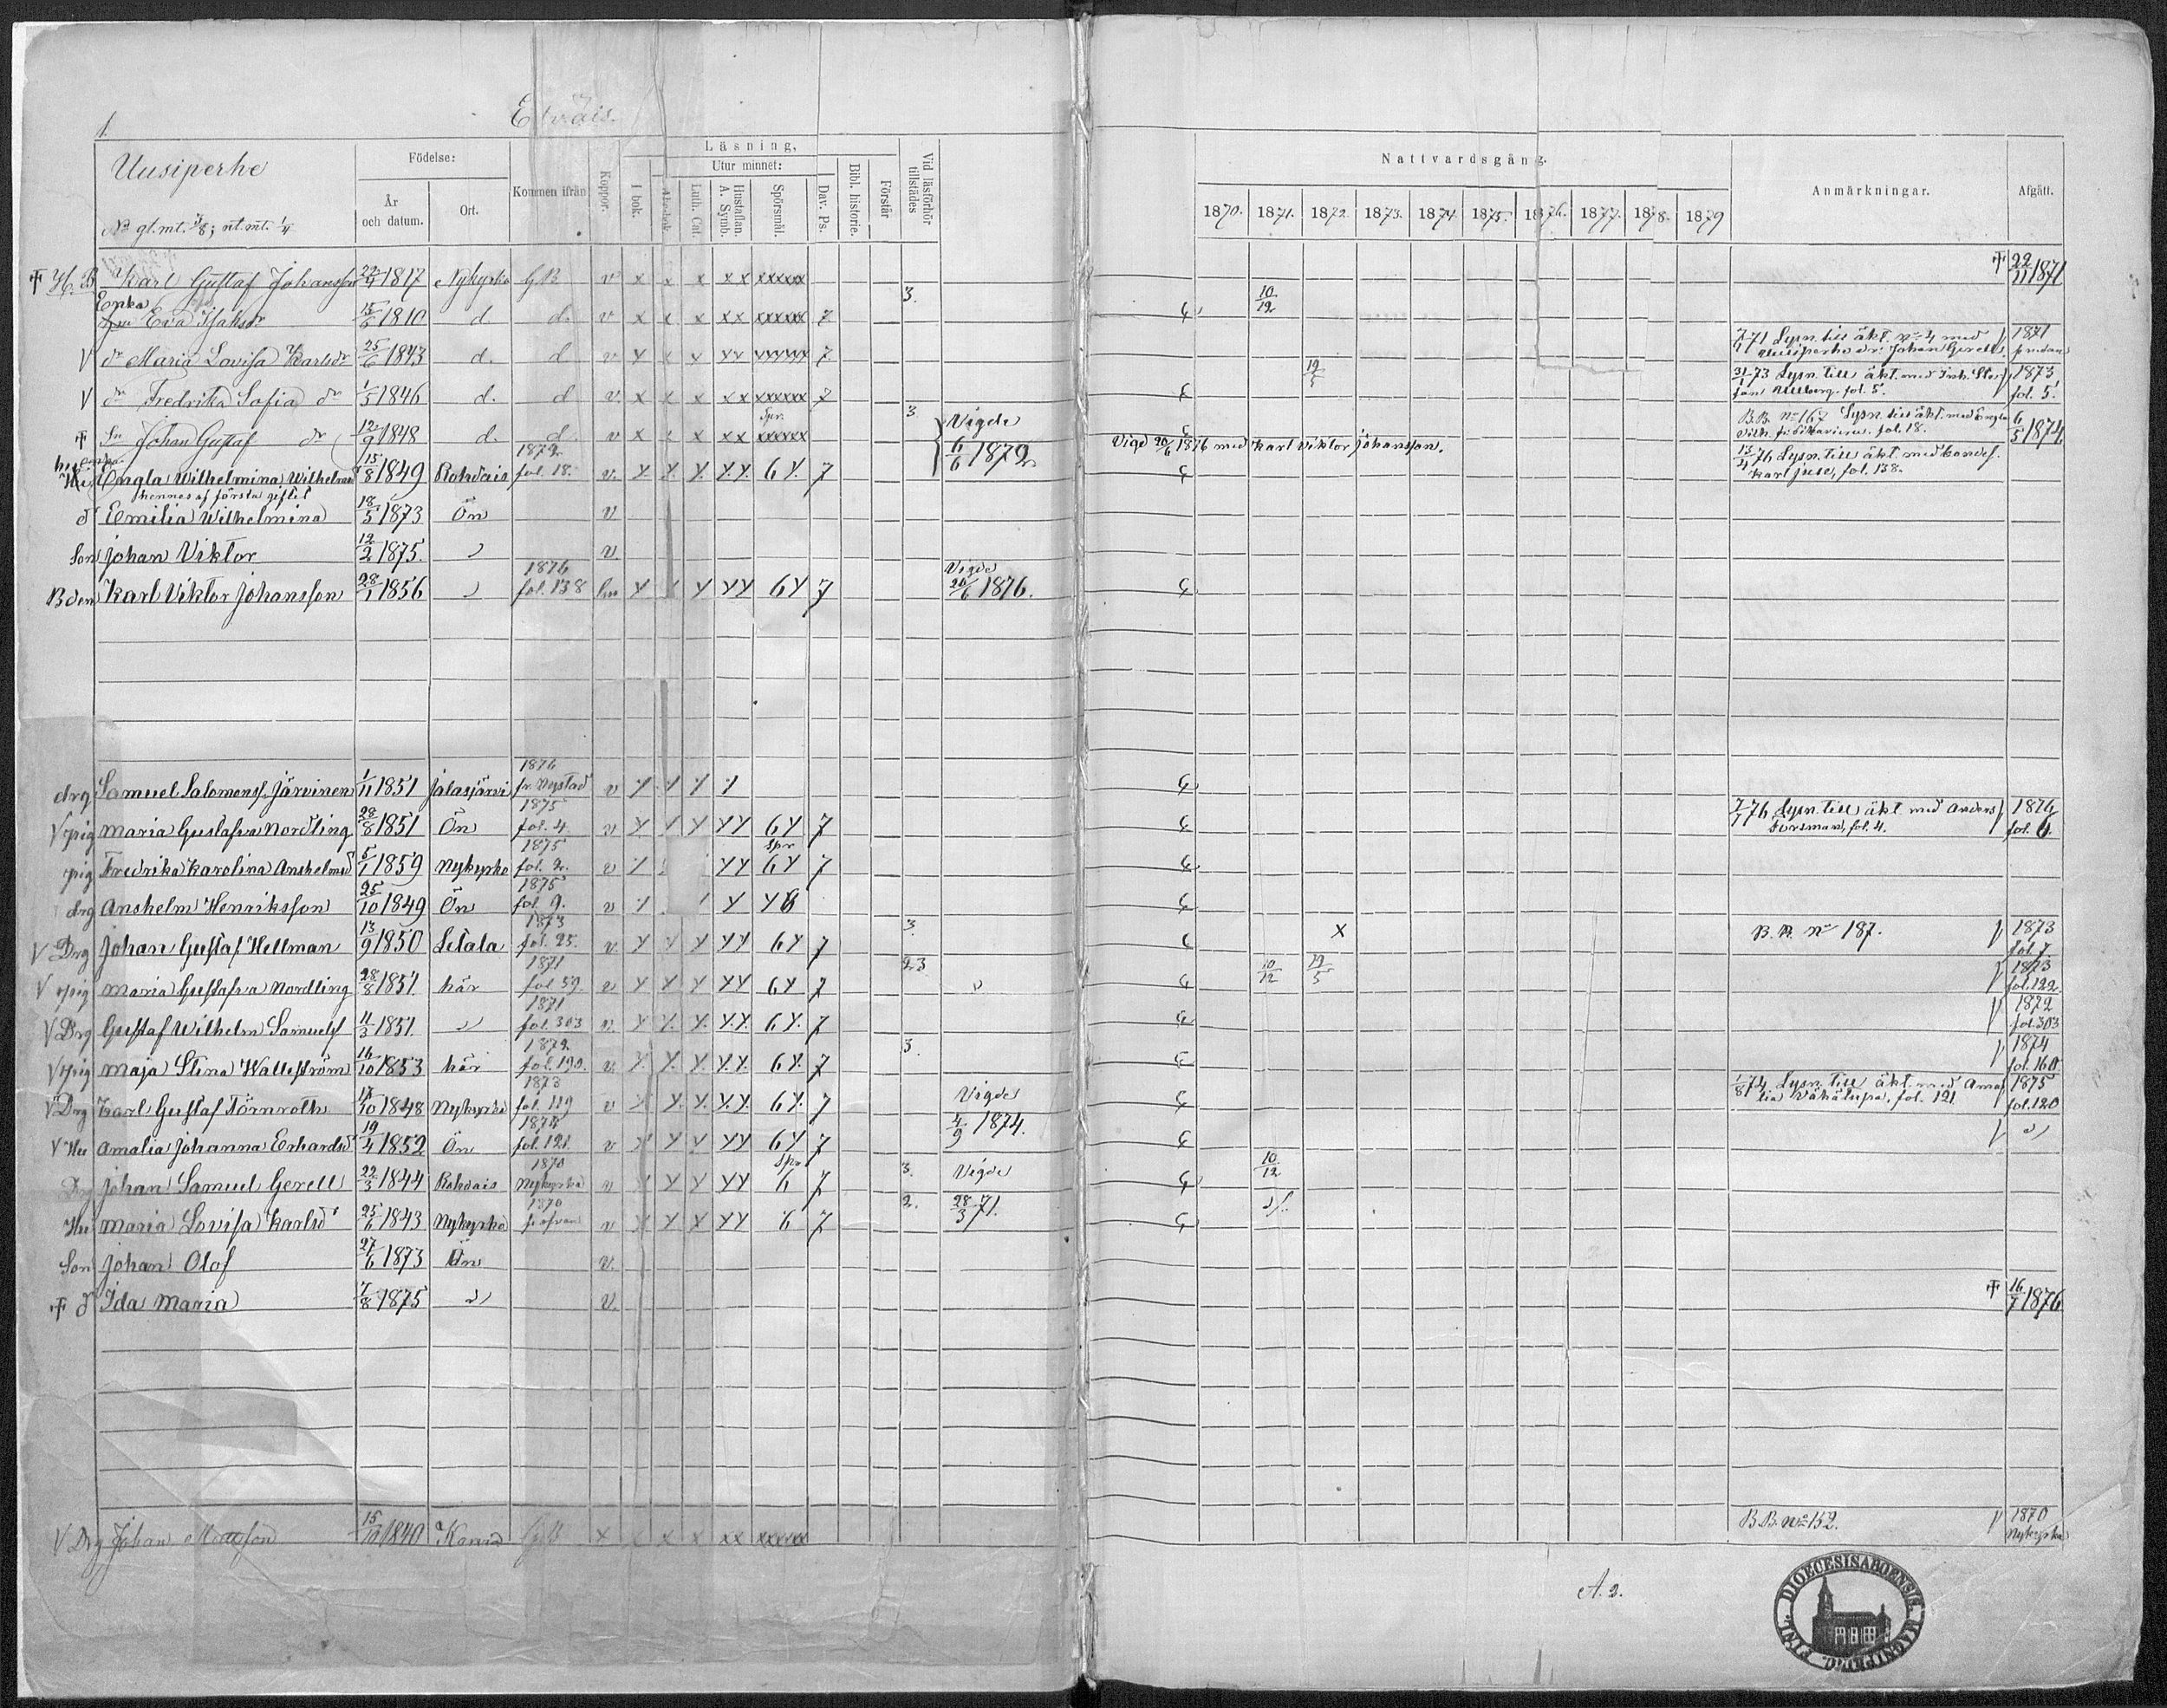 1.
Uusiperhe
No gl. mt. 3/8; nt. mt. 1/4
Födelse: År och datum. Ort. Kommen ifrån Koppor. Läsning, Utur minnet: I bok. Luth. Cat. Hustaflan. A. Symb. Spörsmål. Dav. Ps. Bibl. historie. Förstår Vid läsförhör tillstädes
Nattvardsgång. 1870. 1871. 1872. 1873. 1874. 1875. 1876. 1877. 1878. 1879 Anmärkningar. Afgått.
† H. B Karl Gustaf Johansson 22/4 1817 Nykyrko G B v x x x xx xxxxxx † 22/11 1871
Enka Eva Isaksdr 15/5 1810 d d. v x x x xx xxxxxx 7 3. 10/12
V dr Maria Lovisa Karlsdr 25/6 1843 d. d v y x x yy yyyyyy 7 7/4 71 Lysn. till äkt. No 4 med Uusiperhe dr. Johan Gerell, 1871
V dr Fredrika Sofia dr 1/5 1846 d. d v. x x x xx xxxxxx 7 19/5 31/1 73 Lysn. till äkt. med Inh. fol. 5. 1873 fol. 5.
† Sn Johan Gustaf dr 12/9 1848 d. d. v x x x xx Spr. xxxxxx 3 Vigde 6/6 1872 B.B. No 167 Lysn. till äkt. med Engla Vilh. fol. 18. 6/5 1874
Vigd 20/6 1876 med Karl Viktor Johansson.
enka Engla Wilhelmina Wilhelmsd 15/8 1849 Rohdais 1872 fol. 18. v. y. y. y. y.y. 6 y. 7 13/4 76 Lysn. till äkt. med Karl Juse, fol. 138.
hennes af första giftet
d Emilia Wilhelmina 18/5 1873 Ön v
Son Johan Viktor 12/2 1875. " v.
Bden Karl Viktor Johansson 28/1 1856 " 1876 fol. 138 y y yy 6 y 7 Vigde 20/6 1876.
drg Samuel Salomonss. Järvinen 1/11 1851 Jalasjärvi 1876 fr. Nystad v y y y y
V pig Maria Gustafva Nordling 28/8 1851 Ön 1875 fol. 4. v y y y yy 6 y 7 7/7 76 Lysn. till äkt. med Anders Forsman, fol. 4. 1876 fol. 4.
pig Fredrika Karolina Anshelmsd 5/1 1859 Nykyrko 1875 fol. 2. v y yy Spr 6 y 7
drg Anshelm Henriksson 25/10 1849 Ön 1875 fol. 9. v y y y
V Drg Johan Gustaf Hellman 13/9 1850 Letala 1873 fol. 25. v. y y y yy 6 y 7 3. x B. B. No 187. 1873 fol. 7.
V pig Maria Gustafva Nordling 28/8 1851 här 1871 fol 59. v y y y yy 6 y 7 2 3 10/12 19/5 1873 fol. 122
V Drg Gustaf Wilhelm Samuelss 11/3 1851 " 1871 fol. 303 v. y y. y. y.y. 6 y. 7 1872 fol. 303
V pig Maja Stina Wallström 16/10 1853 här 1872 fol. 190. v. y. y. y. y.y. 6 y. 7 3. 1874 fol. 160.
V Drg Karl Gustaf Törnroth 17/10 1848 Nykyrko 1873 fol. 119 v y y. y. y.y. 6 y. 7 Vigde 4/9 1874. 1/8 74 Lysn. till äkt. med Amalia Vähätupa, fol. 121 1875 fol. 120
V Hu Amalia Johanna Erhardsd 19/4 1852 Ön 1874 fol. 121. v y y y yy 6 y 7 "
Drg Johan Samuel Gerell 22/3 1844 Rohdais 1870 Nykyrko v y y yy Spr 6 7 3. Vigde 28/3 71. 10/12
Hu Maria Lovisa Karlsd 25/6 1843 Nykyrko 1870 fr. ofvan v y y x yy 6 7 2. "
Son Johan Olof 27/6 1873 Ön v.
† d Ida Maria 7/8 1875 " v. † 16/7 1876
V Drg Johan 15/10 1840 x x x x xx xxxxxx B.B. No 152. 1870 Nykyrko
A. 2.
DIOECESIS ABOENSIS